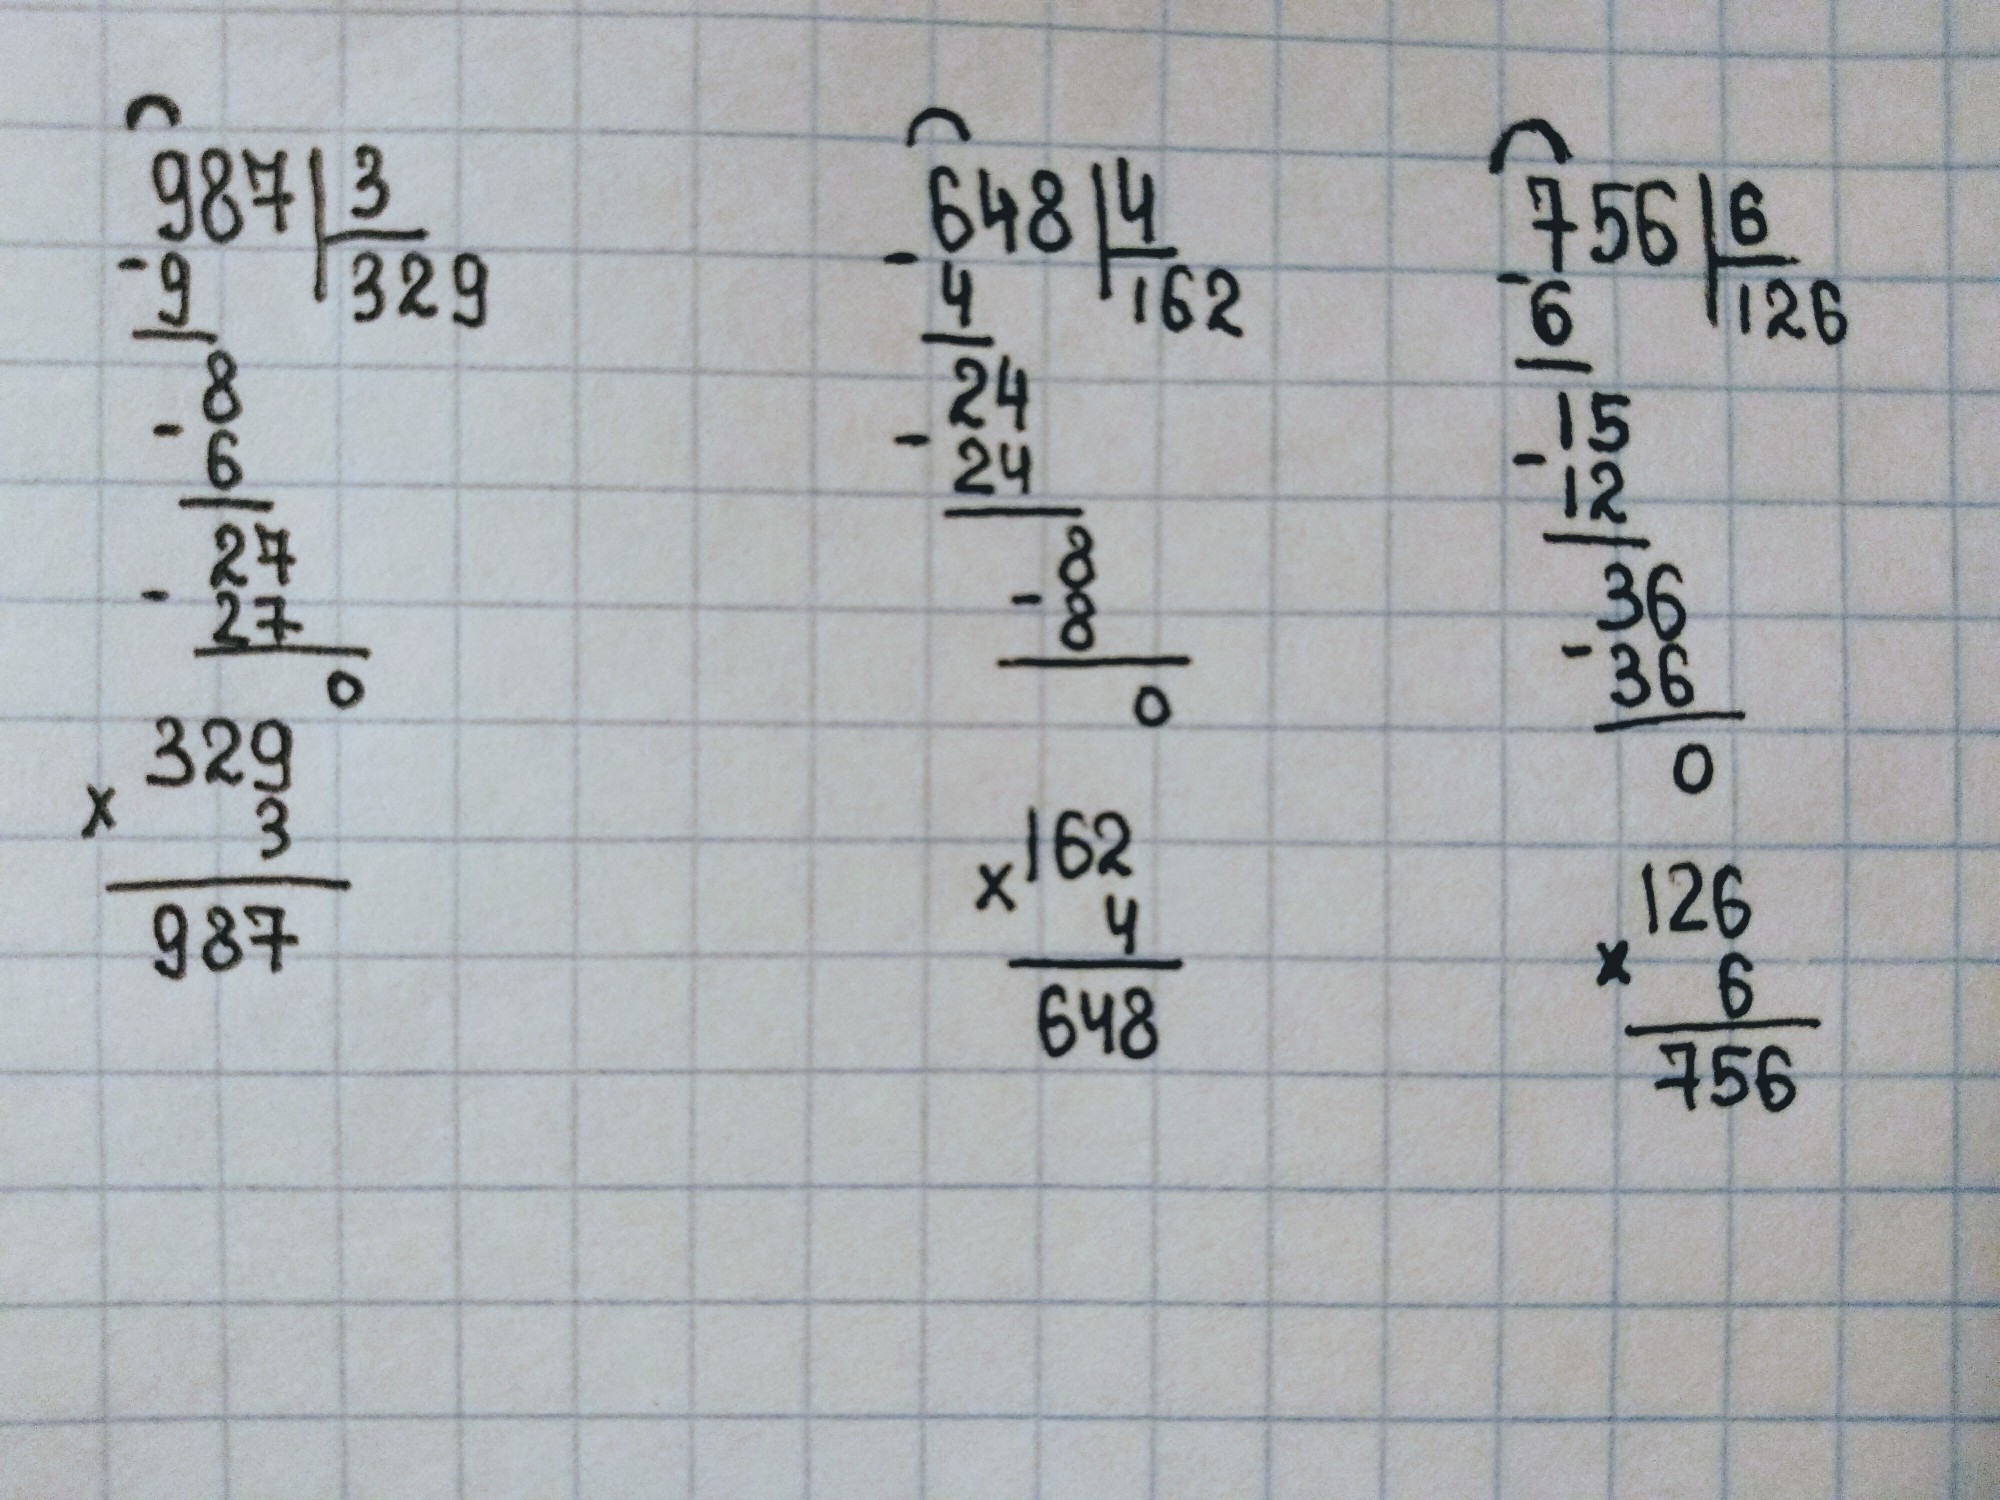 987 | 3
- 9 | 329
8
- 6
27
- 27
0
329
x 3
987
648 | 4
- 4 | 162
24
- 24
8
- 8
0
162
x 4
648
756 | 6
- 6 | 126
15
- 12
36
- 36
0
126
x 6
756